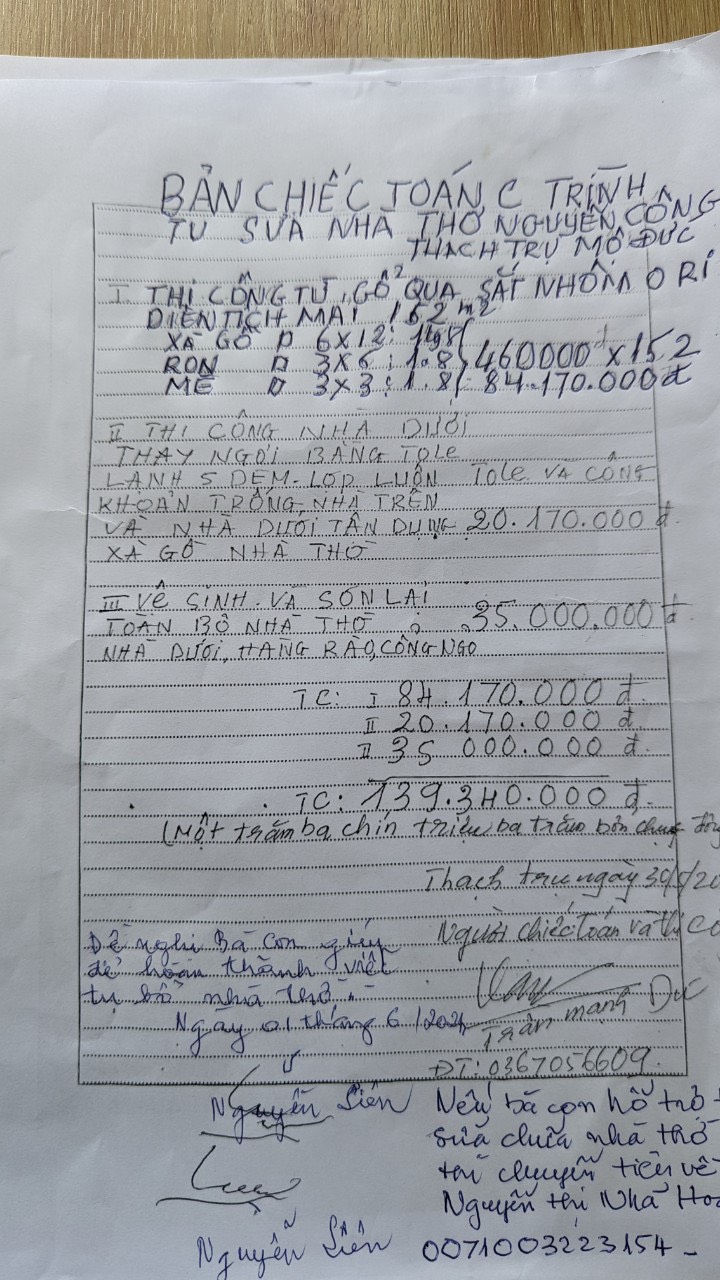 BẢN CHIẾC TOÁN C TRÌNH
TU SỬA NHÀ THỜ NGUYỄN CÔNG
THẠCH TRỤ MỘ ĐỨC
I. THI CÔNG TỪ GỖ QUA SẮT NHÓM O RI
DIỆN TÍCH MÁI 152 m2
XÀ GỒ 6X12: 1,8
RON 3X6: 1.8 460000đ X 152
MÈ 3X3: 1.8 84.170.000đ
II THI CÔNG NHÀ DƯỚI
THAY NGÓI BẰNG TOLE
LẠNH 5 DEM. LỢP LUÔN TOLE VÀ CÔNG
KHOẢN TRỐNG, NHÀ TRÊN
VÀ NHÀ DƯỚI TẬN DỤNG 20.170.000 đ.
XÀ GỒ NHÀ THỜ
III VỆ SINH. VÀ SƠN LẠI
TOÀN BỘ NHÀ THỜ 35.000.000đ
NHÀ DƯỚI, HÀNG RÀO, CỔNG NGO
TC: I 84.170.000 đ.
II 20.170.000 đ.
II 35 000.000 đ.
TC: 139.340.000 đ.
(Một trăm ba chín triệu ba trăm bốn chục đồng
Thạch trụ ngày 30/5/20
Người chiếc toán và thi co
Trần mạnh Đức
ĐT: 0367056609.
Đề nghị Bà con giúp
để hoàn thành việc
tu bổ nhà thờ
Ngày 01 tháng 6 /2024
Nguyễn Liên
Nếu bà con hỗ trợ
sửa chữa nhà thờ
thì chuyển tiền về
Nguyễn thị Nhã Hoa
Nguyễn Liên 0071003223154 -